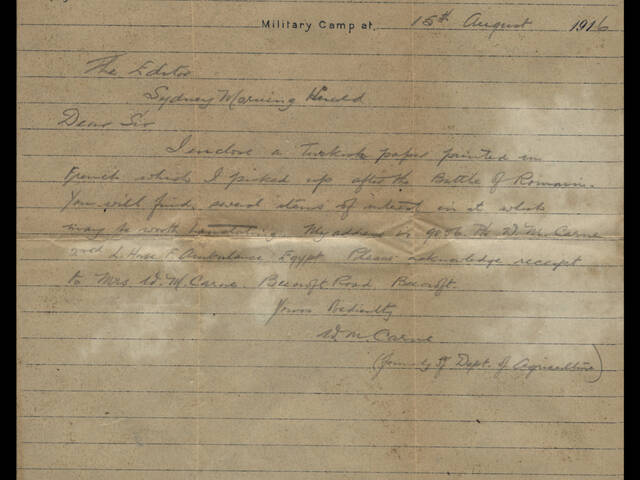 Military Camp at, 15th August 1916
The Editor
Sydney Morning Herald
Dear Sir
I enclose a Turkish paper printed in
French which I picked up after the Battle of Romani.
You will find several items of interest in it which
may be worth translating. My address is W. M. Carne
2nd L. Horse F. Ambulance Egypt. Please acknowledge receipt
to Mrs W. M. Carne. Beecroft Road, Beecroft.
Yours Obediently
W. M. Carne
(formerly of Dept. of Agriculture)